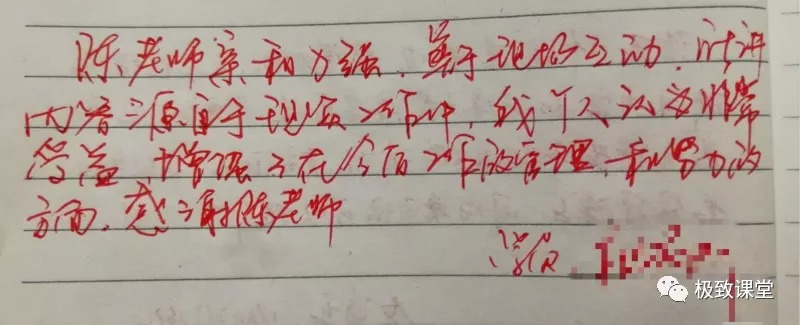 陈老师亲和力强，善于现场互动，所讲
内容源自于现实工作中，我个人认为非常
受益，增强了在今后工作的管理和努力的
方面，感谢陈老师
学员
极致课堂